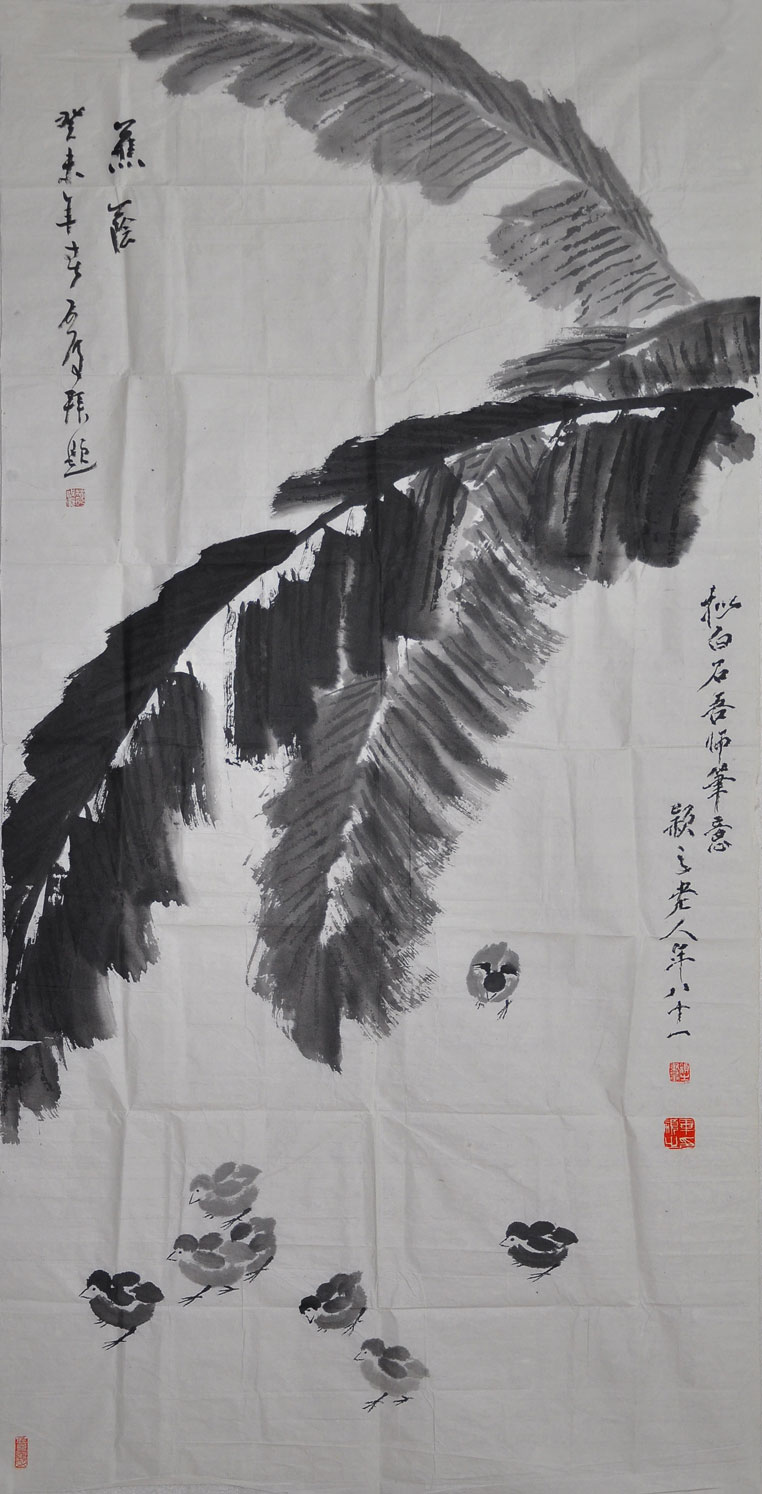 蕉蔭
癸未年春石厚琹題
拟白石吾师筆意
颖之老人年八十一